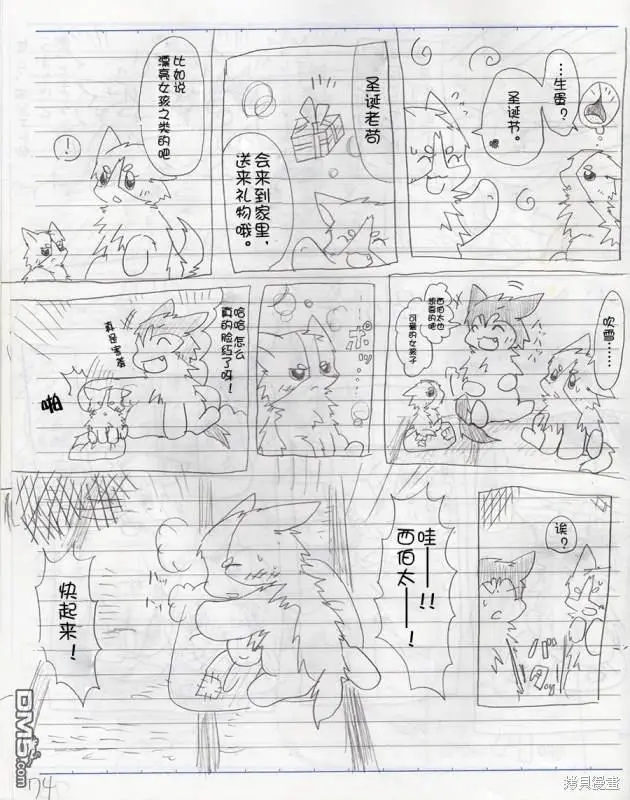 …生蛋？
圣诞节。
嗯
圣诞老苟
会来到家里，
送来礼物哦。
比如说
漂亮女孩之类的吧
！
吹雪……
西伯太也
想要的吧
可爱的女孩子
ポッ
哈哈怎么
真的脸红了呀！
真是害羞
啪
诶？
哇——！！
西伯太——！
快起来！
DM5.com
74
拷貝漫畫